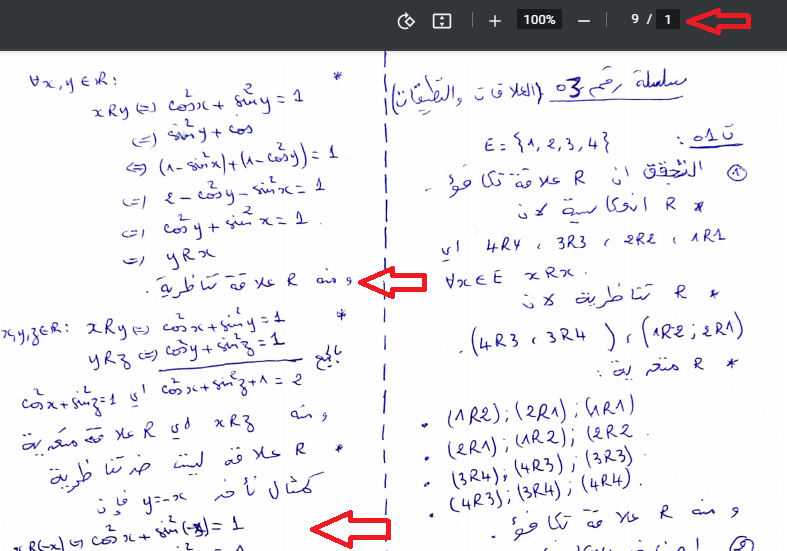 100%
9 / 1
سلسلة رقم 03 (العلاقات والتطبيقات)
ت01:
E = {1, 2, 3, 4}
① التحقق ان R علاقة تكافؤ .
* R انعكاسية لان
1R1 ، 2R2 ، 3R3 ، 4R4 اي
∀x ∈ E xRx .
* R تناظرية لان
(1R2 ; 2R1) ، (3R4 ، 4R3) .
* R متعدية :
• (1R2) ; (2R1) ; (1R1)
• (2R1) ; (1R2) ; (2R2 .
• (3R4) ; (4R3) ; (3R3)
• (4R3) ; (3R4) ; (4R4) .
ومنه R علاقة تكافؤ .
* ∀x, y ∈ R :
xRy ⇔ cos²x + sin²y = 1
⇔ sin²y + cos
⇔ (1 - sin²x) + (1 - cos²y) = 1
⇔ 2 - cos²y - sin²x = 1
⇔ cos²y + sin²x = 1
⇔ yRx
ومنه R علاقة تناظرية .
* x, y, z ∈ R : xRy ⇔ cos²x + sin²y = 1
yRz ⇔ cos²y + sin²z = 1
بالجمع
cos²x + sin²z + 1 = 2 اي cos²x + sin²z = 1
ومنه xRz اي R علاقة متعدية
* R علاقة ليست ضد تناظرية
كمثال نأخذ y = -x فإن
xR(-x) ⇔ cos²x + sin²(-x) = 1